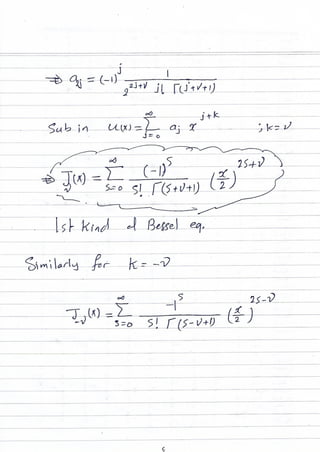 ⇒ a_j = (-1)^j 1 / (2^{2j+ν} j! Γ(j+ν+1))
Sub in u(x) = Σ_{j=0}^{∞} a_j x^{j+k} ; k=ν
⇒ J_ν(x) = Σ_{s=0}^{∞} (-1)^s / (s! Γ(s+ν+1)) (x/2)^{2s+ν}
1st kind of Bessel eq.
Similarly for k = -ν
J_{-ν}(x) = Σ_{s=0}^{∞} -1^s / (s! Γ(s-ν+1)) (x/2)^{2s-ν}